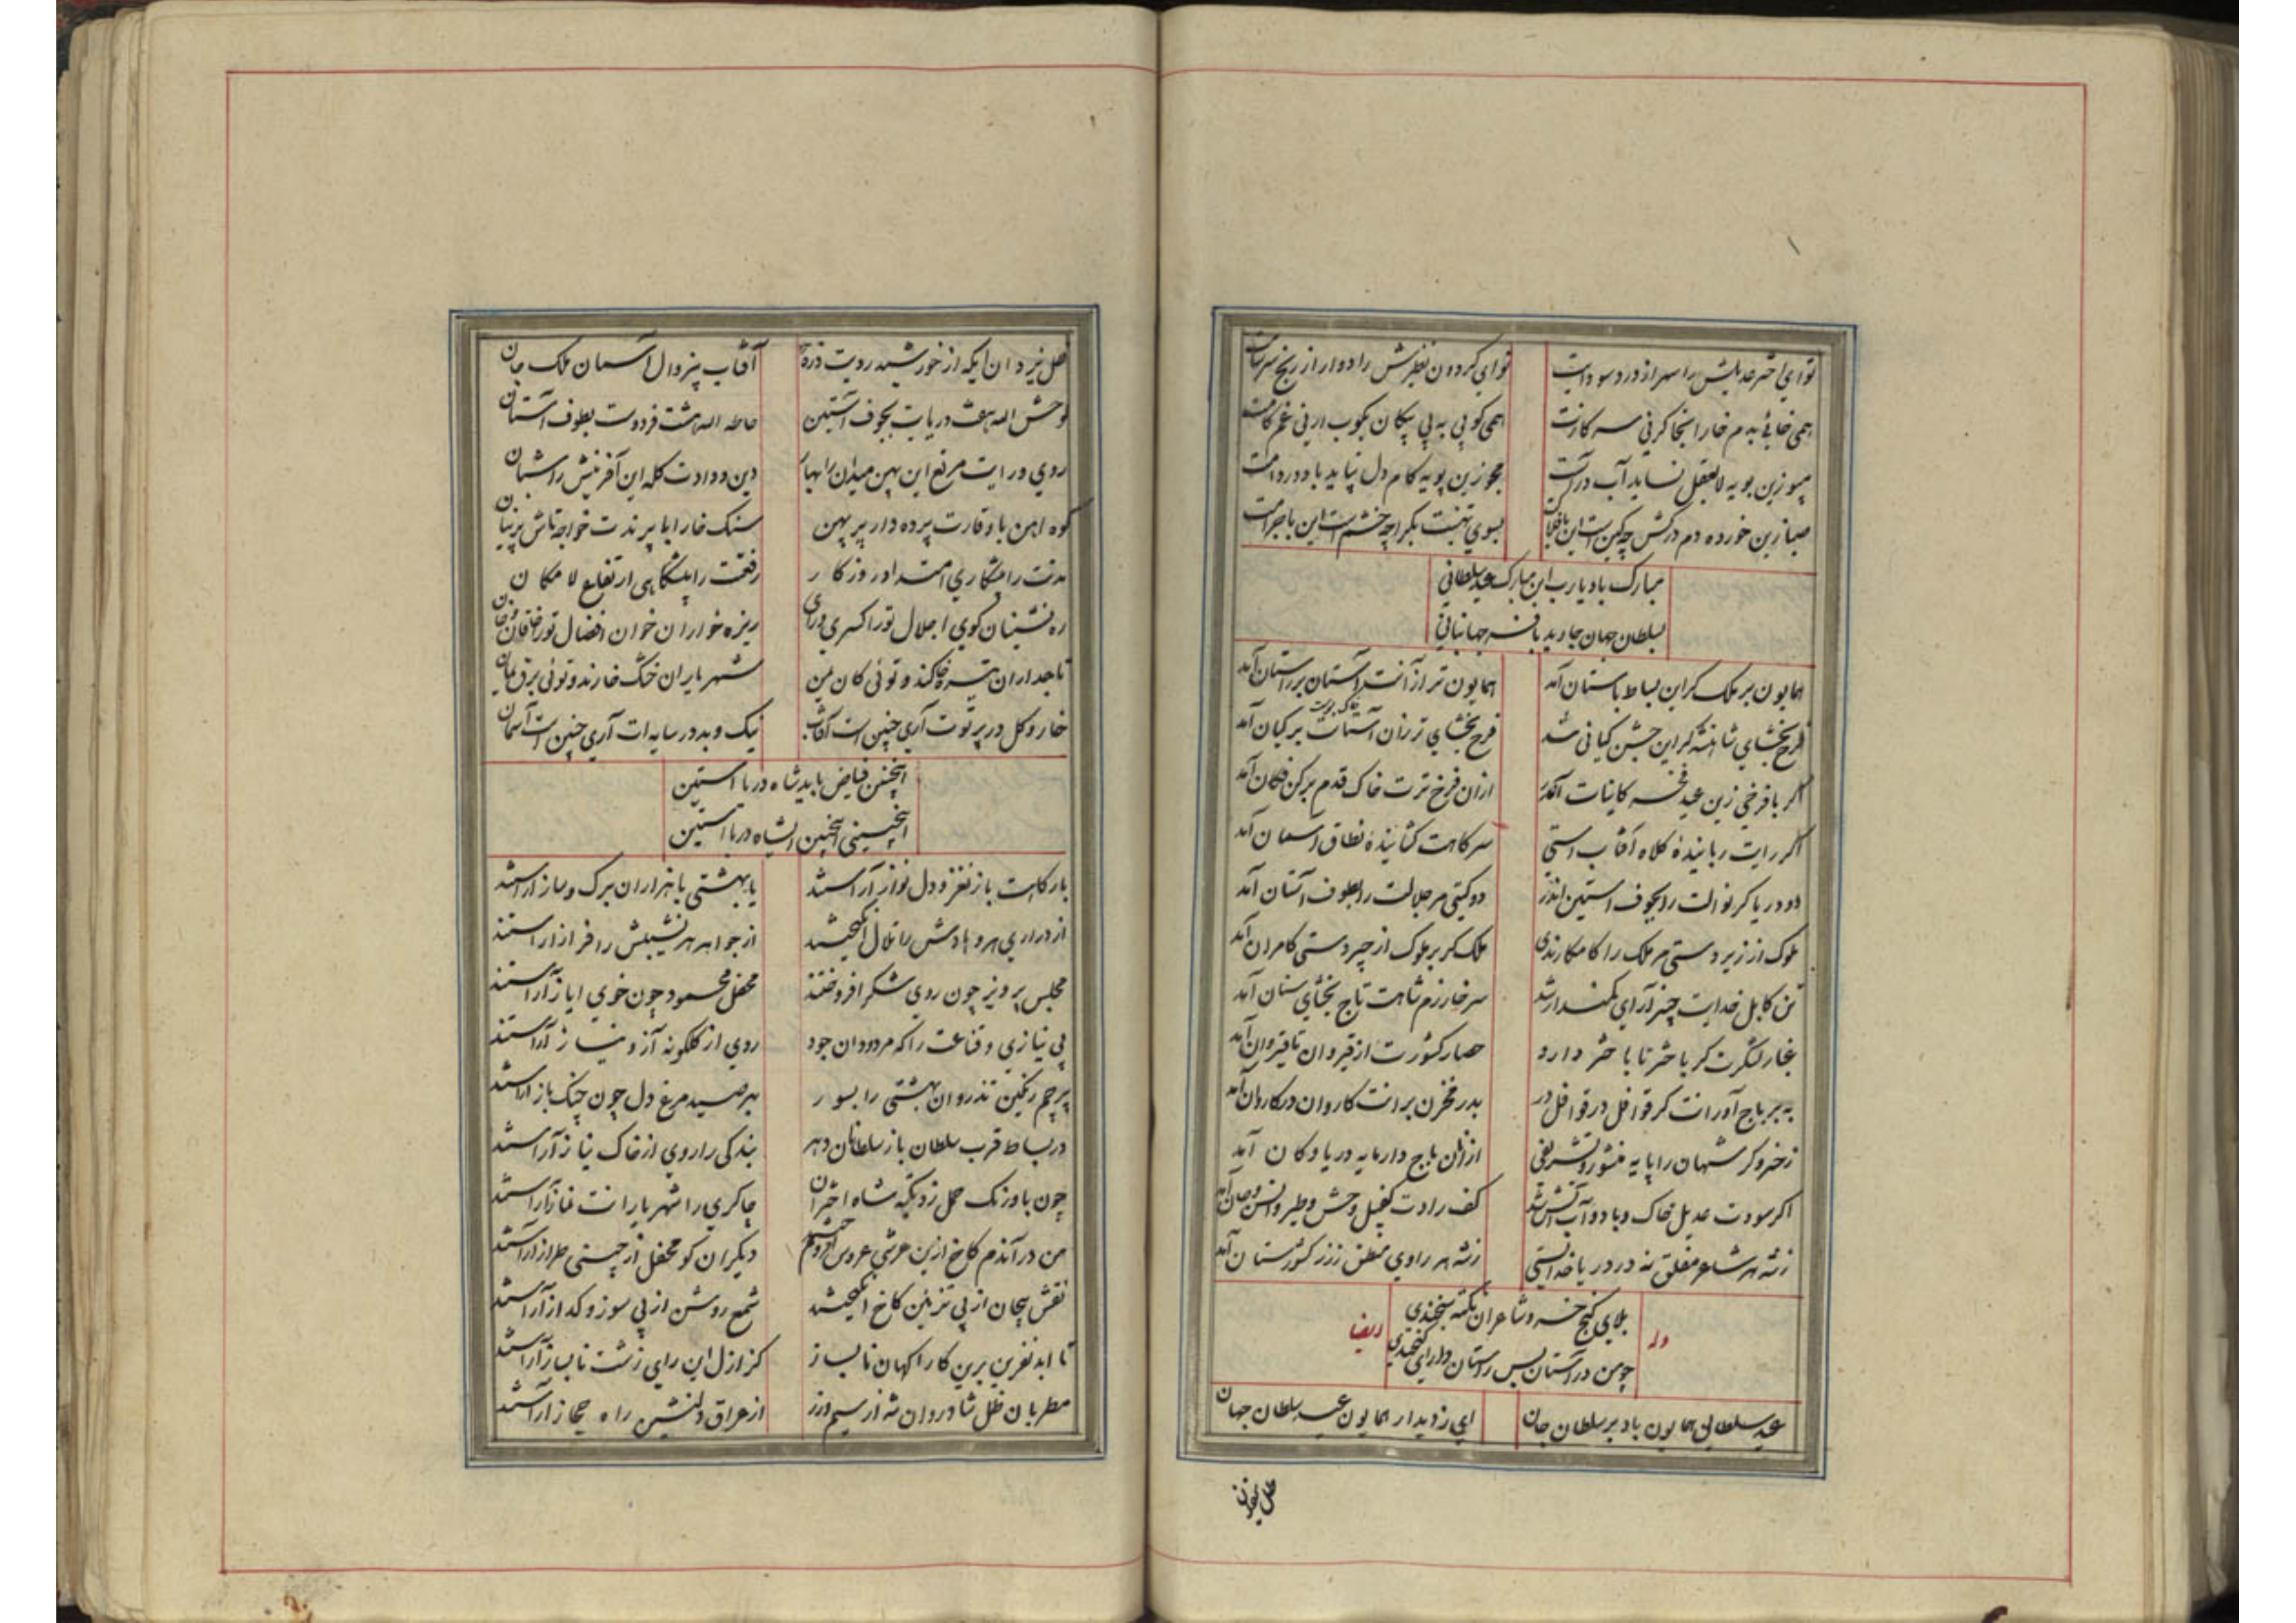 تو ای اختر عدیلش را سر از درد سودایت
تو ای گردون نظیرش را دوار از رنج سرسامت
همی خائی بدم خارا
همی کوبی به پی پیکان
زین بویه لایعقل نساید آب در
مجو زین پویه کام دل نیاید باد در دامت
صبا زین خورده دم درکش چه کین است این
بسوی تهنیت بگرا چه خشم است این
مبارک باد یا رب این مبارک عید سلطانی
بسلطان جهان جاوید با فر جهانبانی
همایون بر ملک گر این بساط باستان آمد
همایون تر از آنت آستان بر راستان آمد
فرح بخشای شاهنشه گر این جشن کیانی شد
فرح بخشای تر زان آستانت بر کیان آمد
خاک
اگر با فرخی زین عید فخر کاینات آمد
ازان فرخ ترت خاک قدم بر کن فکان آمد
اگر رایت ربایندهٔ کلاه آفتاب استی
سر کاهت گشایندهٔ نطاق آسمان آمد
دو دریا گر نوالت را بجوف آستین اندر
دو گیتی مر جلالت را بطوف آستان آمد
ملوک از زیردستی مر ملک را کامکارندی
ملک گر بر ملوک از چیردستی کامران آمد
تن کابل خدایت چنبر آرای کمند ار شد
سر خارزم شاهت تاج بخشای سنان آمد
غبار لشگرت گر باختر تا باختر دارد
حصار کشورت از قیروان تا قیروان آمد
به بر باج آورانت گر قوافل در قوافل در
بدر مخزن برانت کاروان در کاروان آمد
ز خسرو گر شهان را پایه منشور و تشریفی
از آنان باج دارمایه دریا و کان آمد
اگر سودت عدیل خاک و باد و آب و آتش شد
کف رادت کفیل وحش و طیر و انس و جان آمد
ز شه هر شاعر مفلق نه در دریا خدا استی
ز شه هر راوی منطق نه زر کشورستان آمد
بلای گنج خسرو شاعران نکته سنجندی
وله
ایضا
چو من در آستان بس راستان دارای گنجندی
عید سلطانی همایون باد بر سلطان جان
ای ز دیدار همایون عید سلطان جهان
ظل یزدان
ظل یزدان ایکه از خورشید رویت ذرهٔ
آفتاب بیزوال آسمان ملک جان
لوحش الله هفت دریایت بجوف آستین
حاطه الله هشت فردوست بطوف آستان
روی و رایت مرتع این پهن میدان را بهار
دین و دادت گله این آفرینش را شبان
کوه آهن با وقارت پرده دار پیرهن
سنگ خارا با پرندت خواجه تاش پرنیان
مدتت را پیشکاری امتداد روزگار
رفعتت را پایگاهی ارتفاع لامکان
ره نشینان کوی اجلال تو را کسری و رای
ریزه خواران خوان افضال تو را خاقان و خان
تاجداران تیره خاکند و توئی کان یمن
شهریاران خشک خارند و توئی برق یمان
خار و گل در پرتوت آری چنین است آفتاب
نیک و بد در سایه ات آری چنین است آسمان
اینچنین فیاض باید شاه دریا آستین
اینچنینی اینچنین ای شاه دریا آستین
بارگاهت باز نغز و دل نواز آراستند
یا بهشتی با هزاران برگ و ساز آراستند
از دراری هر وهادش را تلال انگیختند
از جواهر هر نشیبش را فراز آراستند
مجلس پرویز چون روی شکر افروختند
محفل محمود چون خوی ایاز آراستند
بی نیازی و قناعت را که مردودان جود
روی از گلگونه آز و نیاز آراستند
پرچم رنگین تذروان بهشتی را بسور
بهر صید مرغ دل چون چنگ باز آراستند
در بساط قرب سلطان باز سلطانان دهر
بندگی را روی از خاک نیاز آراستند
چون باورنگ حمل زد تکیه شاه اختران
چاکری را شهریارانت نماز آراستند
من در آتش کاخ ازین عرشی عروس افروختم
دیگران گو محفل از چینی طراز آراستند
نقش بیجان از پی تزیین کاخ انگیختند
شمع روشن از پی سوز و گداز آراستند
تا ابد نفرین برین کارآگهان ناپساز
کز ازل این رای زشت ناپساز آراستند
مطربان ظل شادروان شه از سیم و زر
از عراق دلنشین راه حجاز آراستند